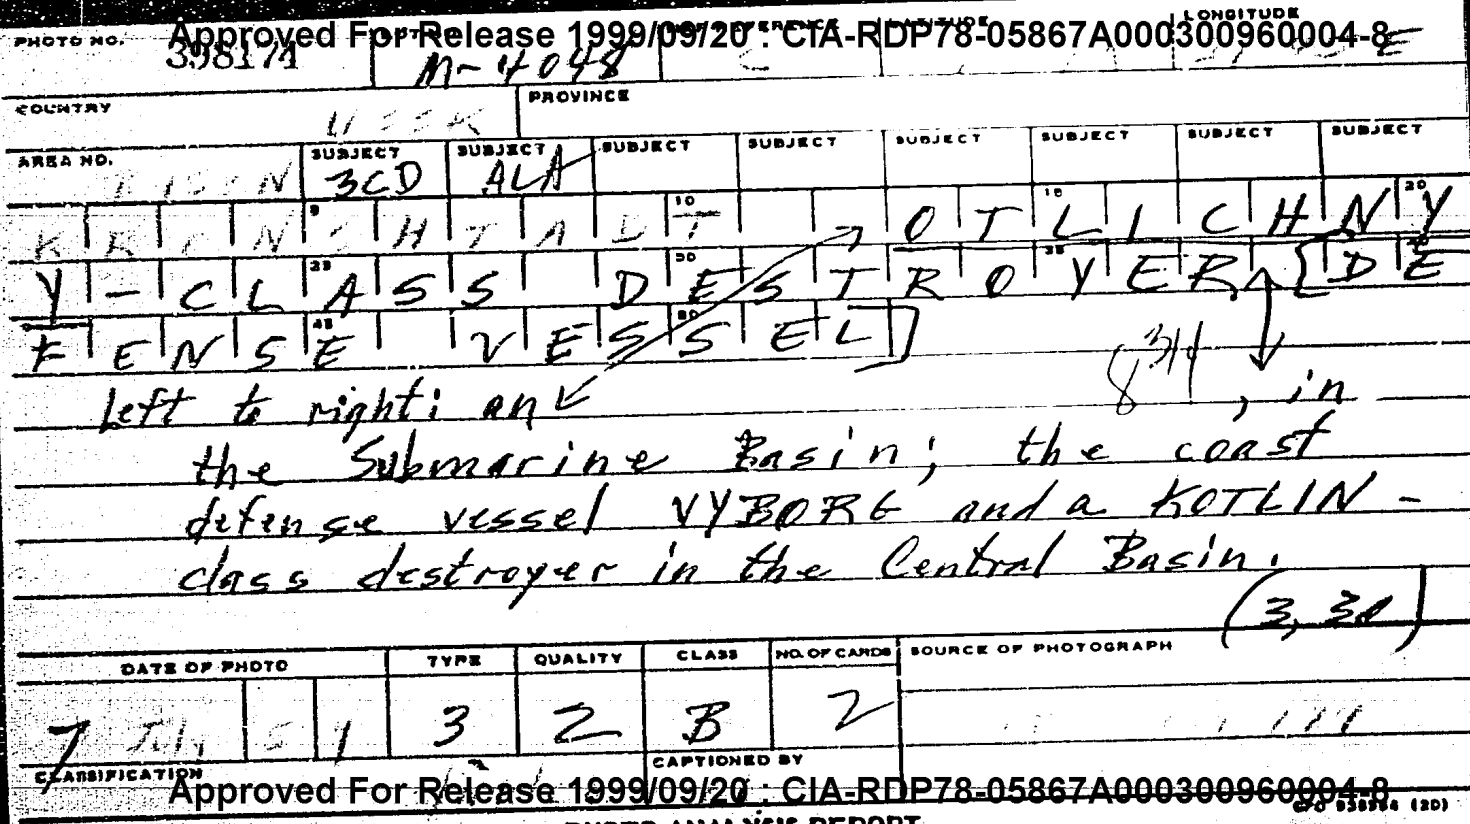 Approved For Release 1999/09/20 : CIA-RDP78-05867A000300960004-8
PHOTO NO. LATITUDE LONGITUDE
398174 M-4048 E
COUNTRY USSR PROVINCE
AREA NO. SUBJECT SUBJECT SUBJECT SUBJECT SUBJECT SUBJECT SUBJECT SUBJECT
3CD ALA
KRONSHTADT OTLICHNY
Y-CLASS DESTROYER [DE
FENSE VESSEL]
8 3/4
Left to right: an , in
the Submarine Basin; the coast
defense vessel VYBORG and a KOTLIN-
class destroyer in the Central Basin.
(3, 30)
DATE OF PHOTO TYPE QUALITY CLASS NO. OF CARDS SOURCE OF PHOTOGRAPH
7 July 3 2 B 2
CLASSIFICATION CAPTIONED BY
Approved For Release 1999/09/20 : CIA-RDP78-05867A000300960004-8
(20)
PHOTO ANALYSIS REPORT